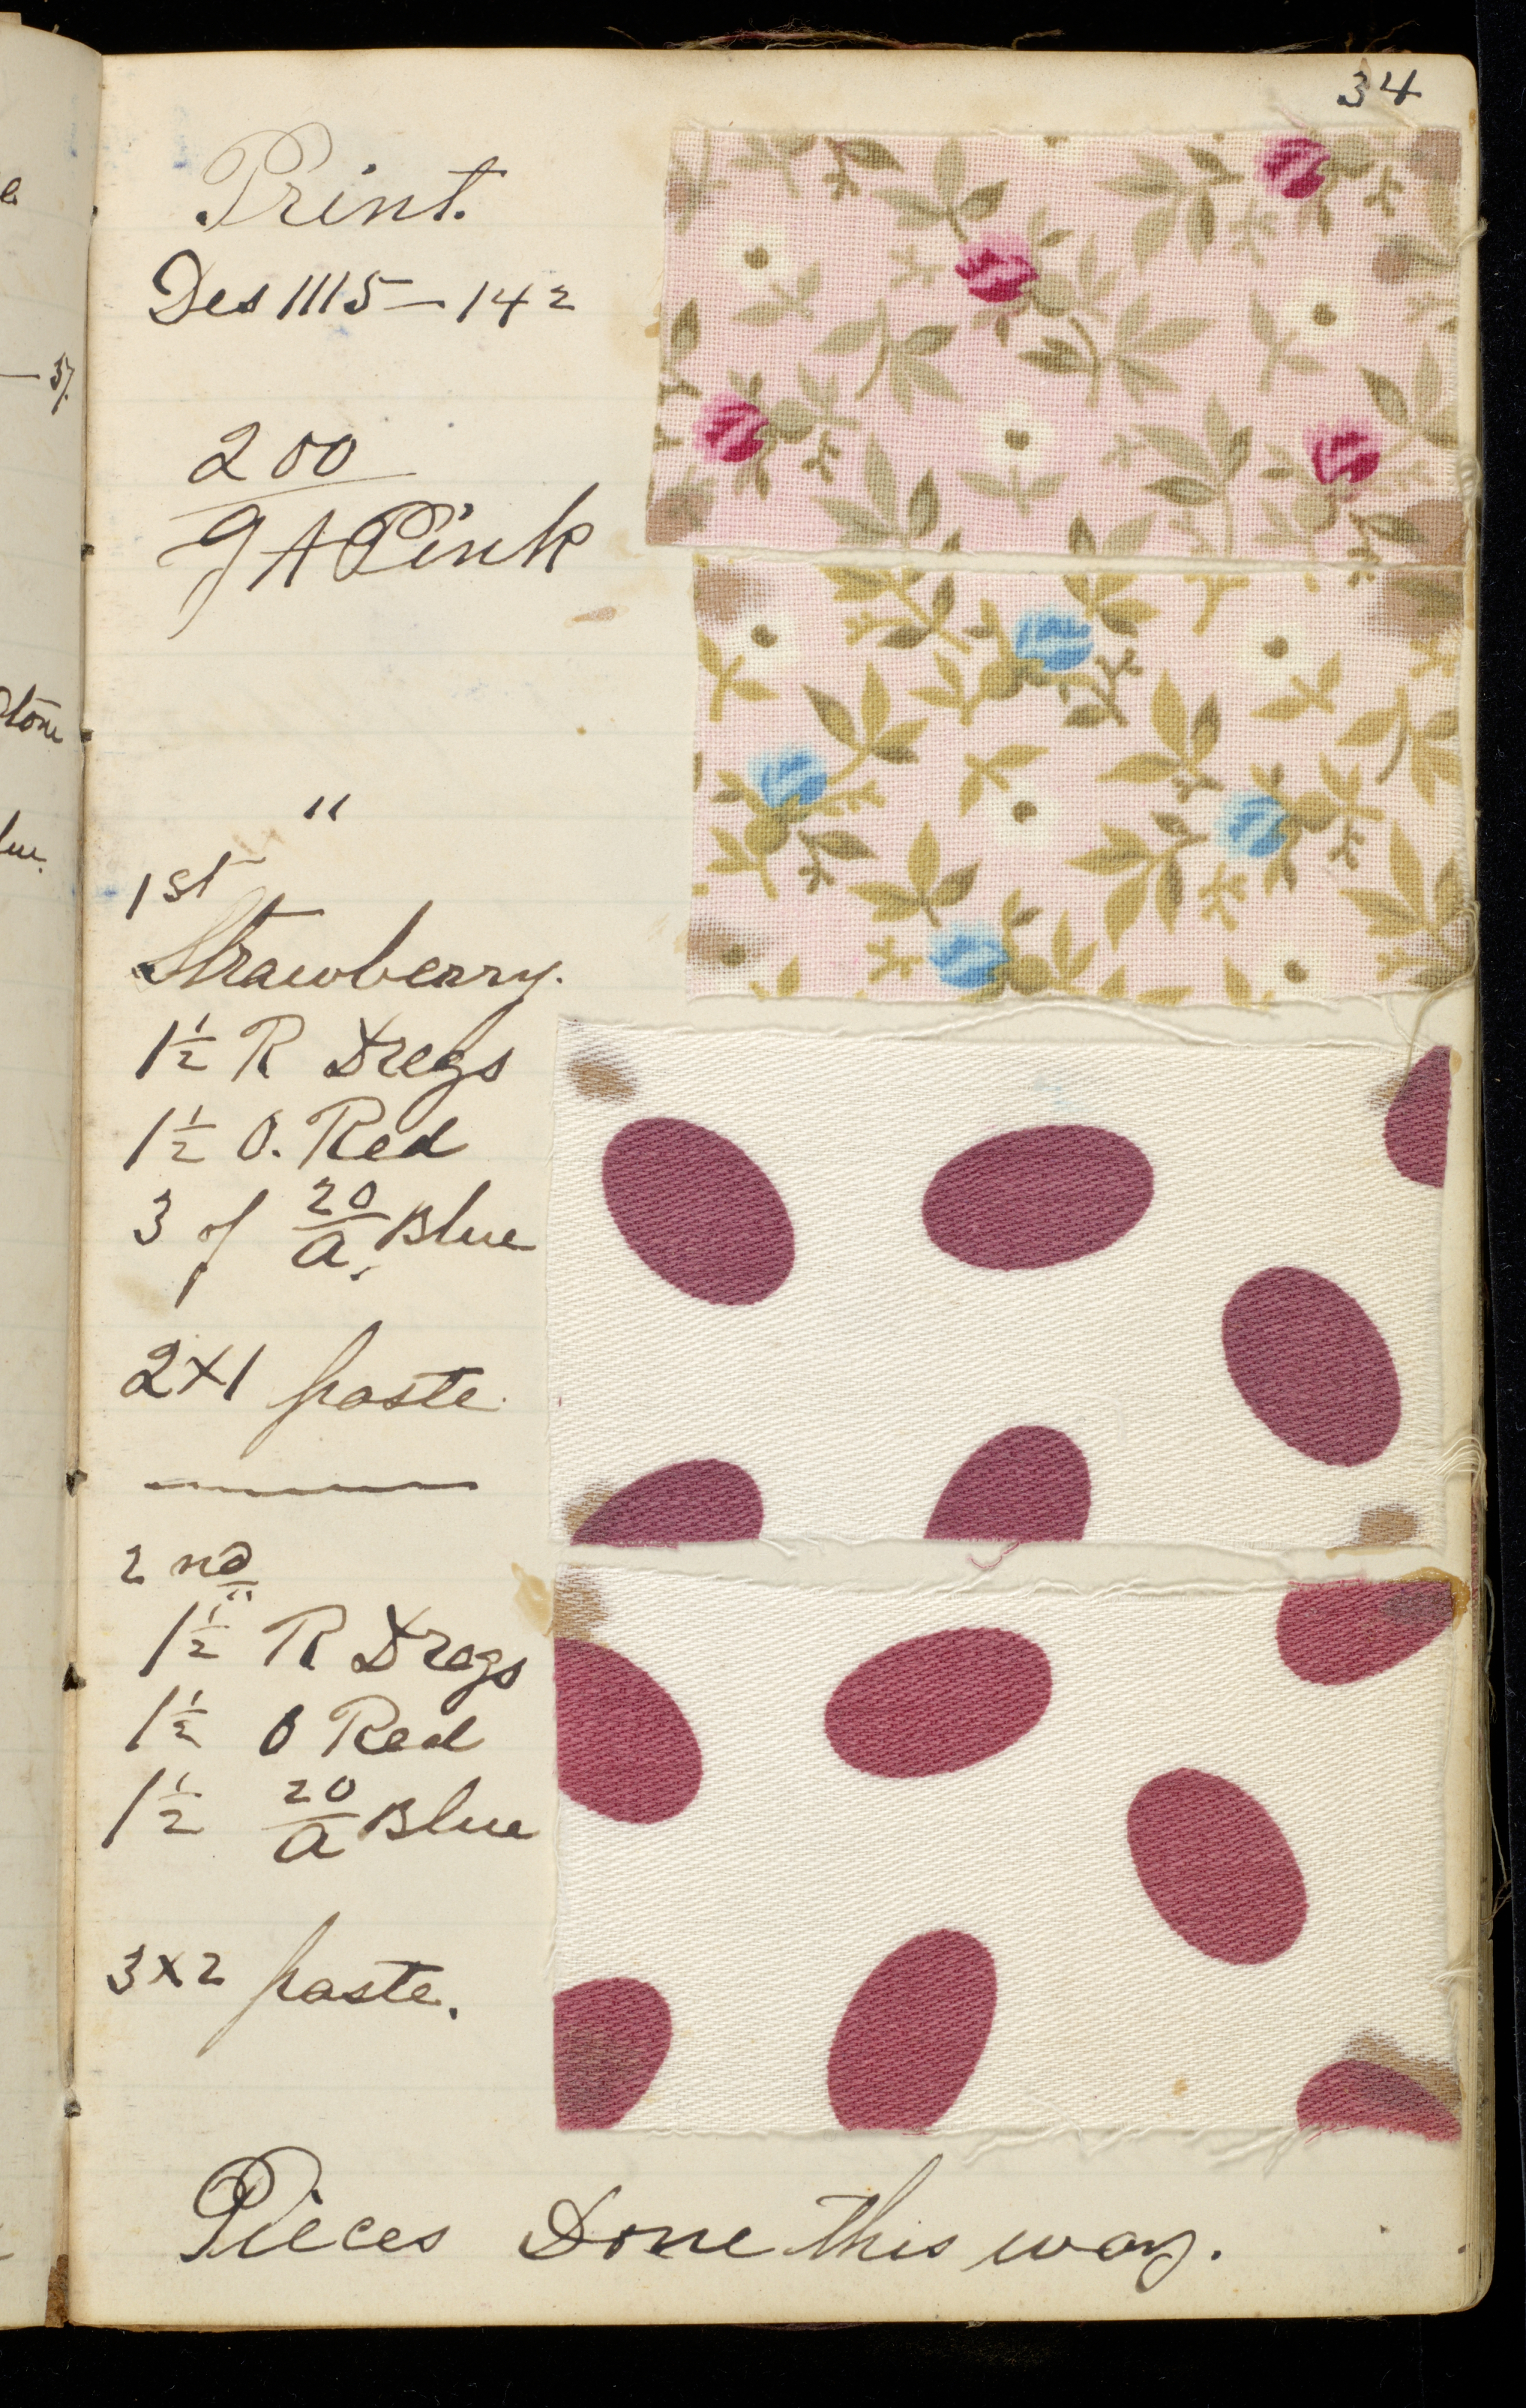 34
Print.
Des 1115 - 142
200
g A Pink
"
1st
Strawberry.
1 1/2 R Dregs
1 1/2 O. Red
3 of 20/a. Blue
2x1 paste.
2 nd
1 1/2 R Dregs
1 1/2 O Red
1 1/2 20/a Blue
3x2 paste.
Pieces Done this way.